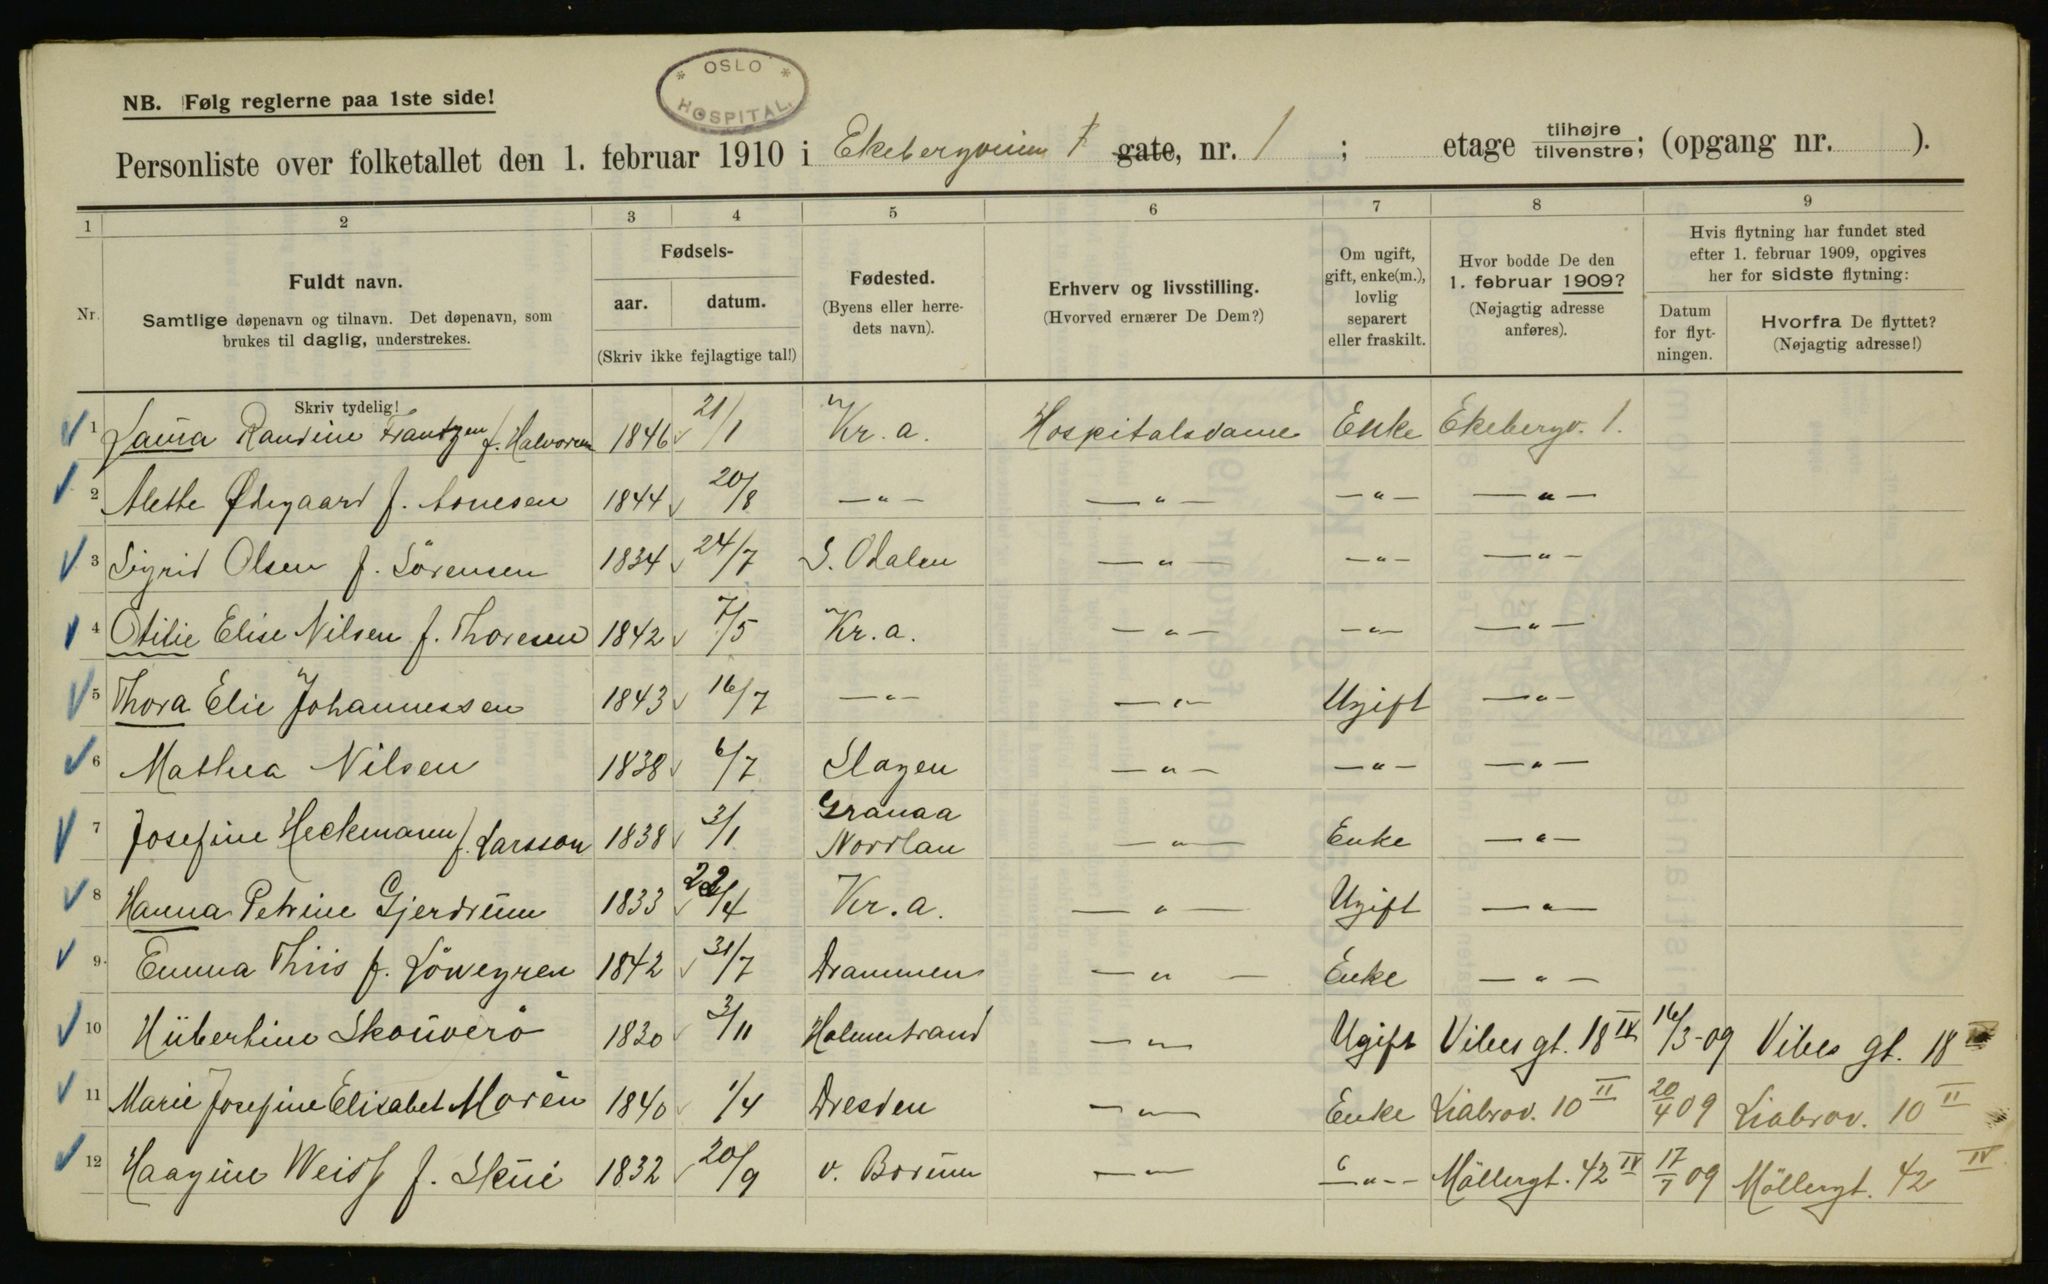 NB. Følg reglerne paa 1ste side!
* OSLO *
HOSPITAL.
Personliste over folketallet den 1. februar 1910 i Ekebergveien gate, nr. 1 ; etage tilhøjre tilvenstre; (opgang nr. ).
1 2 3 4 5 6 7 8 9
Nr. Fuldt navn. Samtlige døpenavn og tilnavn. Det døpenavn, som brukes til daglig, understrekes.
Fødsels-
aar. datum.
(Skriv ikke fejlagtige tal!)
Fødested.
(Byens eller herre-
dets navn).
Erhverv og livsstilling.
(Hvorved ernærer De Dem?)
Om ugift,
gift, enke(m.),
lovlig
separert
eller fraskilt.
Hvor bodde De den
1. februar 1909?
(Nøjagtig adresse
anføres).
Hvis flytning har fundet sted
efter 1. februar 1909, opgives
her for sidste flytning:
Datum
for flyt-
ningen.
Hvorfra De flyttet?
(Nøjagtig adresse!)
Skriv tydelig!
1 Laura Randine Frantzen f. Halvorsen 1846 21/1 Kr.a. Hospitalsdame Enke Ekebergv. 1.
2 Alette Ødegaard f. Aonesen 1844 20/8 —"— —"— —"— —"—
3 Sigrid Olsen f. Sörensen 1834 24/7 S. Odalen —"— —"— —"—
4 Otilie Elise Nilsen f. Thoresen 1842 7/5 Kr.a. —"— —"— —"—
5 Thora Elie Johannessen 1843 16/7 —"— —"— Ugift —"—
6 Mathea Nilsen 1838 6/7 Slagen —"— —"— —"—
7 Josefine Heckmann f. Larsson 1838 3/1 Granaa Norrlan —"— Enke —"—
8 Hanna Petrine Gjerdrum 1833 22/4 Kr.a. —"— Ugift —"—
9 Emma Thiis f. Löwegren 1842 31/7 Drammen —"— Enke —"—
10 Hübertine Skouverö 1830 3/11 Holmestrand —"— Ugift Vibes gt. 18 IV 16/3-09 Vibes gt. 18
11 Marie Josefine Elisabet Morén 1840 1/4 Dresden —"— Enke Liabrov. 10 II 20/4 09 Liabrov. 10 II
12 Haagine Weiss f. Skui 1832 20/9 v. Bærum —"— —"— Möllergt. 42 IV 17/7 09 Möllergt. 42 IV